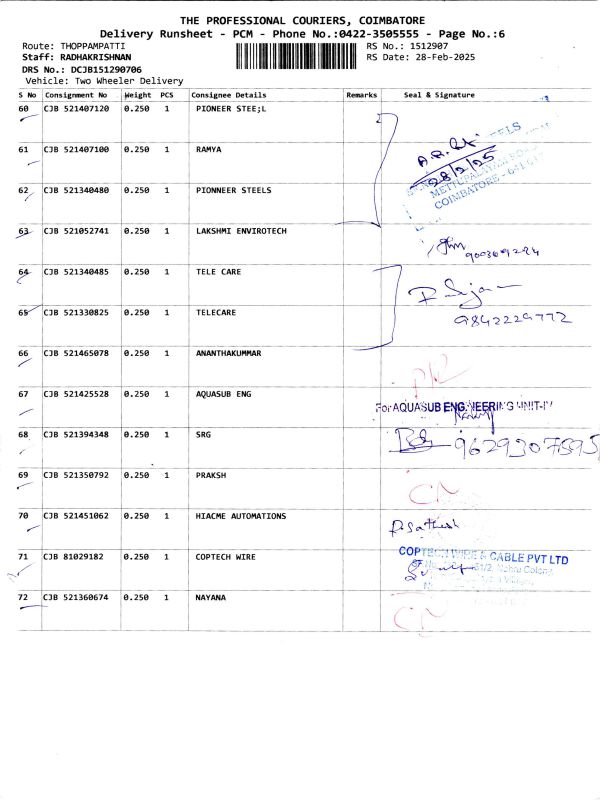 THE PROFESSIONAL COURIERS, COIMBATORE
Delivery Runsheet - PCM - Phone No.:0422-3505555 - Page No.:6
Route: THOPPAMPATTI
RS No.: 1512907
Staff: RADHAKRISHNAN
RS Date: 28-Feb-2025
DRS No.: DCJB151290706
Vehicle: Two Wheeler Delivery
S No Consignment No Weight PCS Consignee Details Remarks Seal & Signature
60 CJB 521407120 0.250 1 PIONEER STEE;L
61 CJB 521407100 0.250 1 RAMYA
28/2/25
METTUPALAYAM ROAD
62 CJB 521340480 0.250 1 PIONNEER STEELS
COIMBATORE - 641
63 CJB 521052741 0.250 1 LAKSHMI ENVIROTECH
64 CJB 521340485 0.250 1 TELE CARE
65 CJB 521330825 0.250 1 TELECARE
9842229772
66 CJB 521465078 0.250 1 ANANTHAKUMMAR
67 CJB 521425528 0.250 1 AQUASUB ENG
For AQUASUB ENGINEERING UNIT-IV
68 CJB 521394348 0.250 1 SRG
9629307595
69 CJB 521350792 0.250 1 PRAKSH
70 CJB 521451062 0.250 1 HIACME AUTOMATIONS
P.Sathish
71 CJB 81029182 0.250 1 COPTECH WIRE
COPTECH WIRE & CABLE PVT LTD
72 CJB 521360674 0.250 1 NAYANA